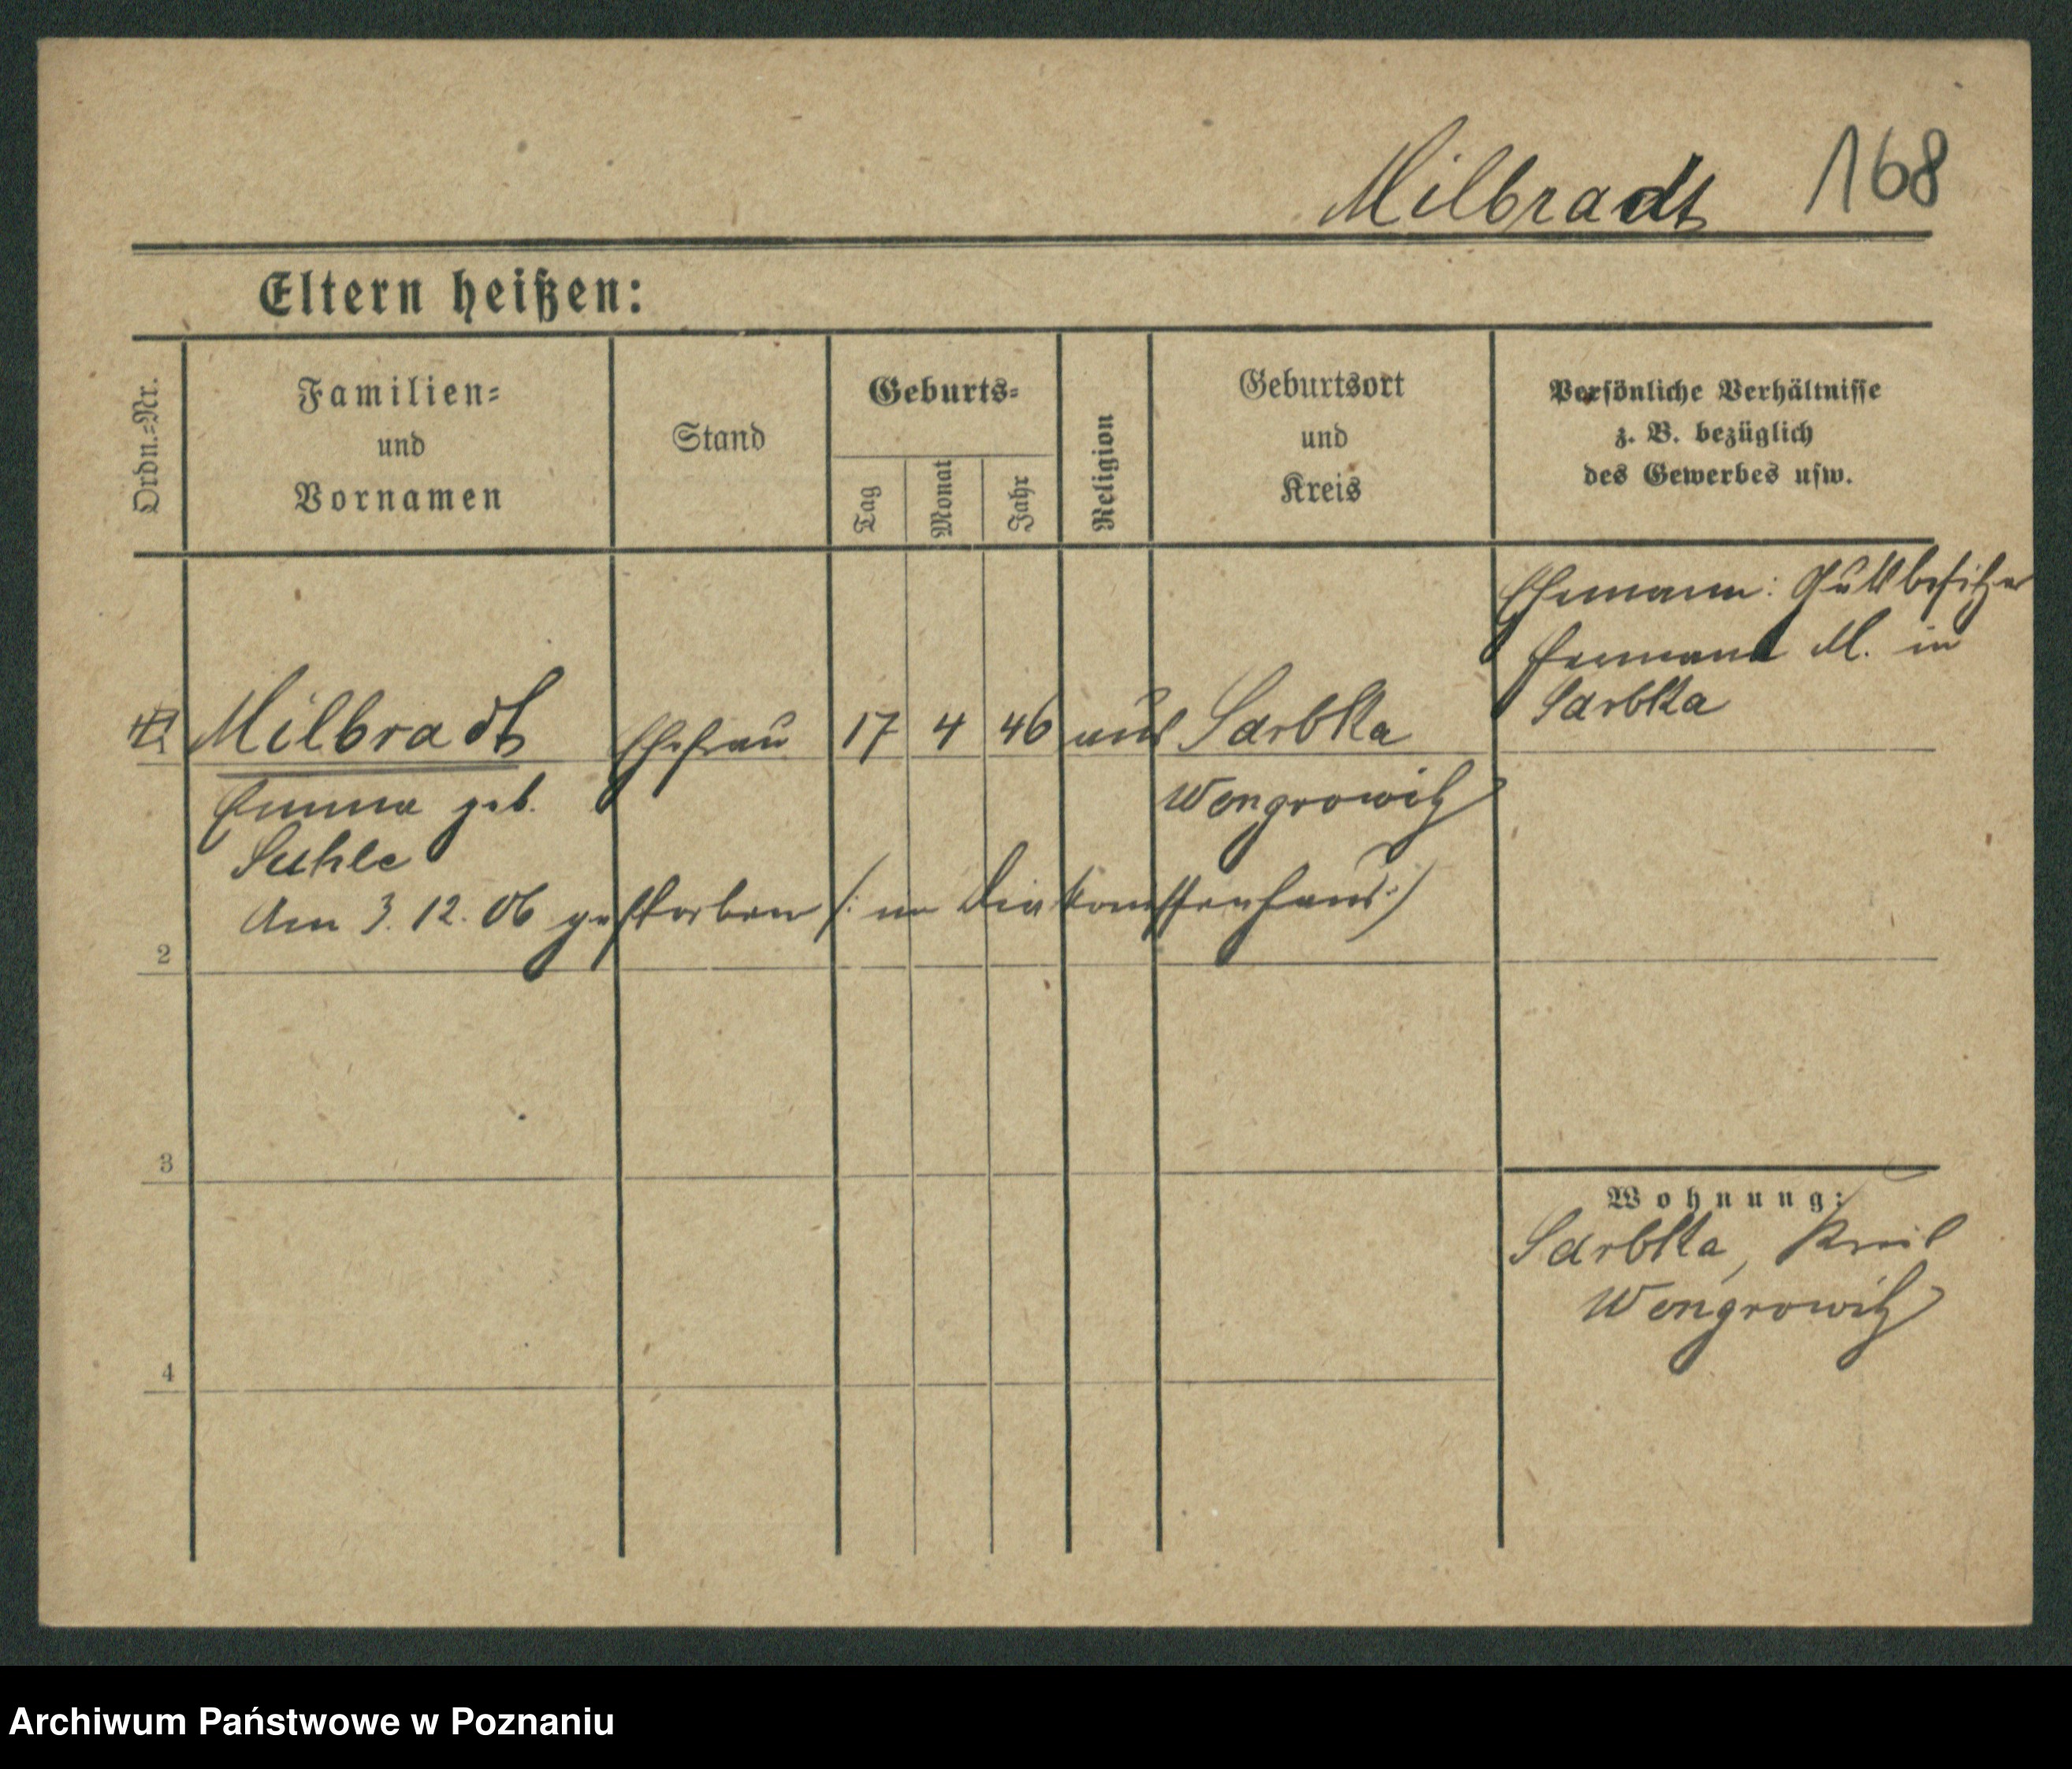 Milbradt 168
Eltern heißen:
Ordn.-Nr.
Familien-
und
Vornamen
Stand
Geburts-
Tag
Monat
Jahr
Religion
Geburtsort
und
Kreis
Persönliche Verhältnisse
z. B. bezüglich
des Gewerbes usw.
Ehemann: Gutsbesitzer
Hermann M. in
Sarbka
1 Milbradt Ehefrau 17 4 46 Sarbka
Emma geb. Wongrowitz
Suhle
Am 3. 12. 06 gestorben /: im Diakonissenhaus :/
2
3
4
Wohnung:
Sarbka, Kreis
Wongrowitz
Archiwum Państwowe w Poznaniu